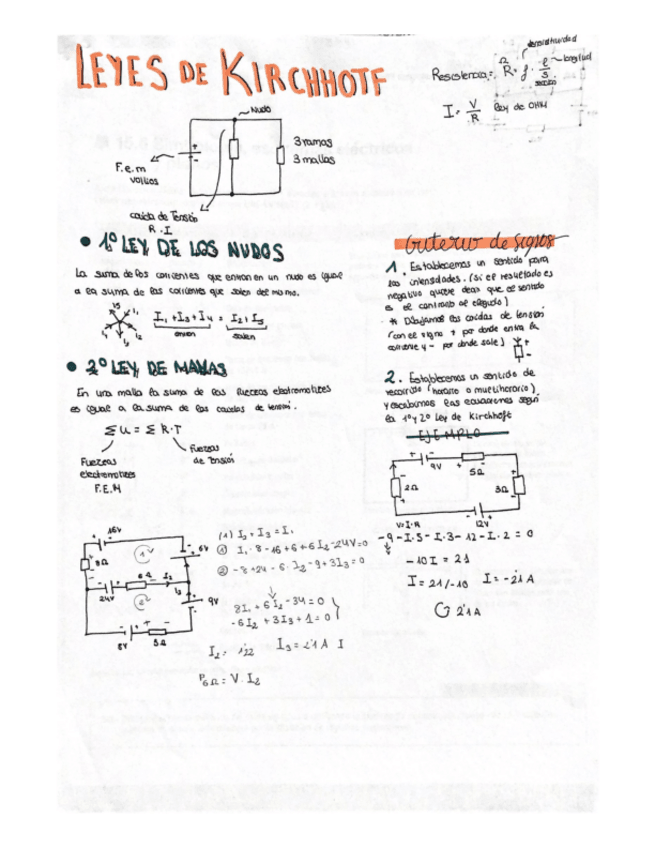 LEYES DE KIRCHHOFF
densistividad
Resistencia: R = ρ · l/s
Ω
longitud
sección
I = V/R ley de OHM
Nudo
3 ramas
3 mallas
F.e.m
voltios
caida de Tensión
R · I
• 1º LEY DE LOS NUDOS
La suma de las corrientes que entran en un nudo es igual
a la suma de las corrientes que salen del mismo.
I₁ + I₃ + I₄ = I₂ + I₅
entran
salen
• 2º LEY DE MALLAS
En una malla la suma de las fuerzas electromotrices
es igual a la suma de las caidas de tensión.
Σ U = Σ R · I
Fuerzas
electromotrices
F.E.M
Fuerzas
de Tensión
Criterio de signos
1. Establecemos un sentido para
las intensidades. (Si el resultado es
negativo quiere decir que el sentido
es el contrario al elegido)
* Dibujamos las caidas de tensión
(con el signo + por donde entra la
corriente y - por donde sale)
2. Establecemos un sentido de
recorrido (horario o antihorario)
y escribimos las ecuaciones según
la 1º y 2º Ley de Kirchhoff
EJEMPLO
9V
5Ω
2Ω
3Ω
V=I·R
12V
-9 - I·5 - I·3 - 12 - I·2 = 0
-10I = 21
I = 21/-10 I = -2'1 A
2'1A
16V
8Ω
6V
6Ω
I₂
24V
I₃
9V
8V
3Ω
1
2
(1) I₂ + I₃ = I₁
① I₁·8 - 16 + 6 + 6I₂ - 24V = 0
② -8 + 24 - 6·I₂ - 9 + 3I₃ = 0
8I₁ + 6I₂ - 34 = 0
-6I₂ + 3I₃ + 1 = 0
I₂ =
I₃ = 2'1 A I
P₆Ω = V · I₂